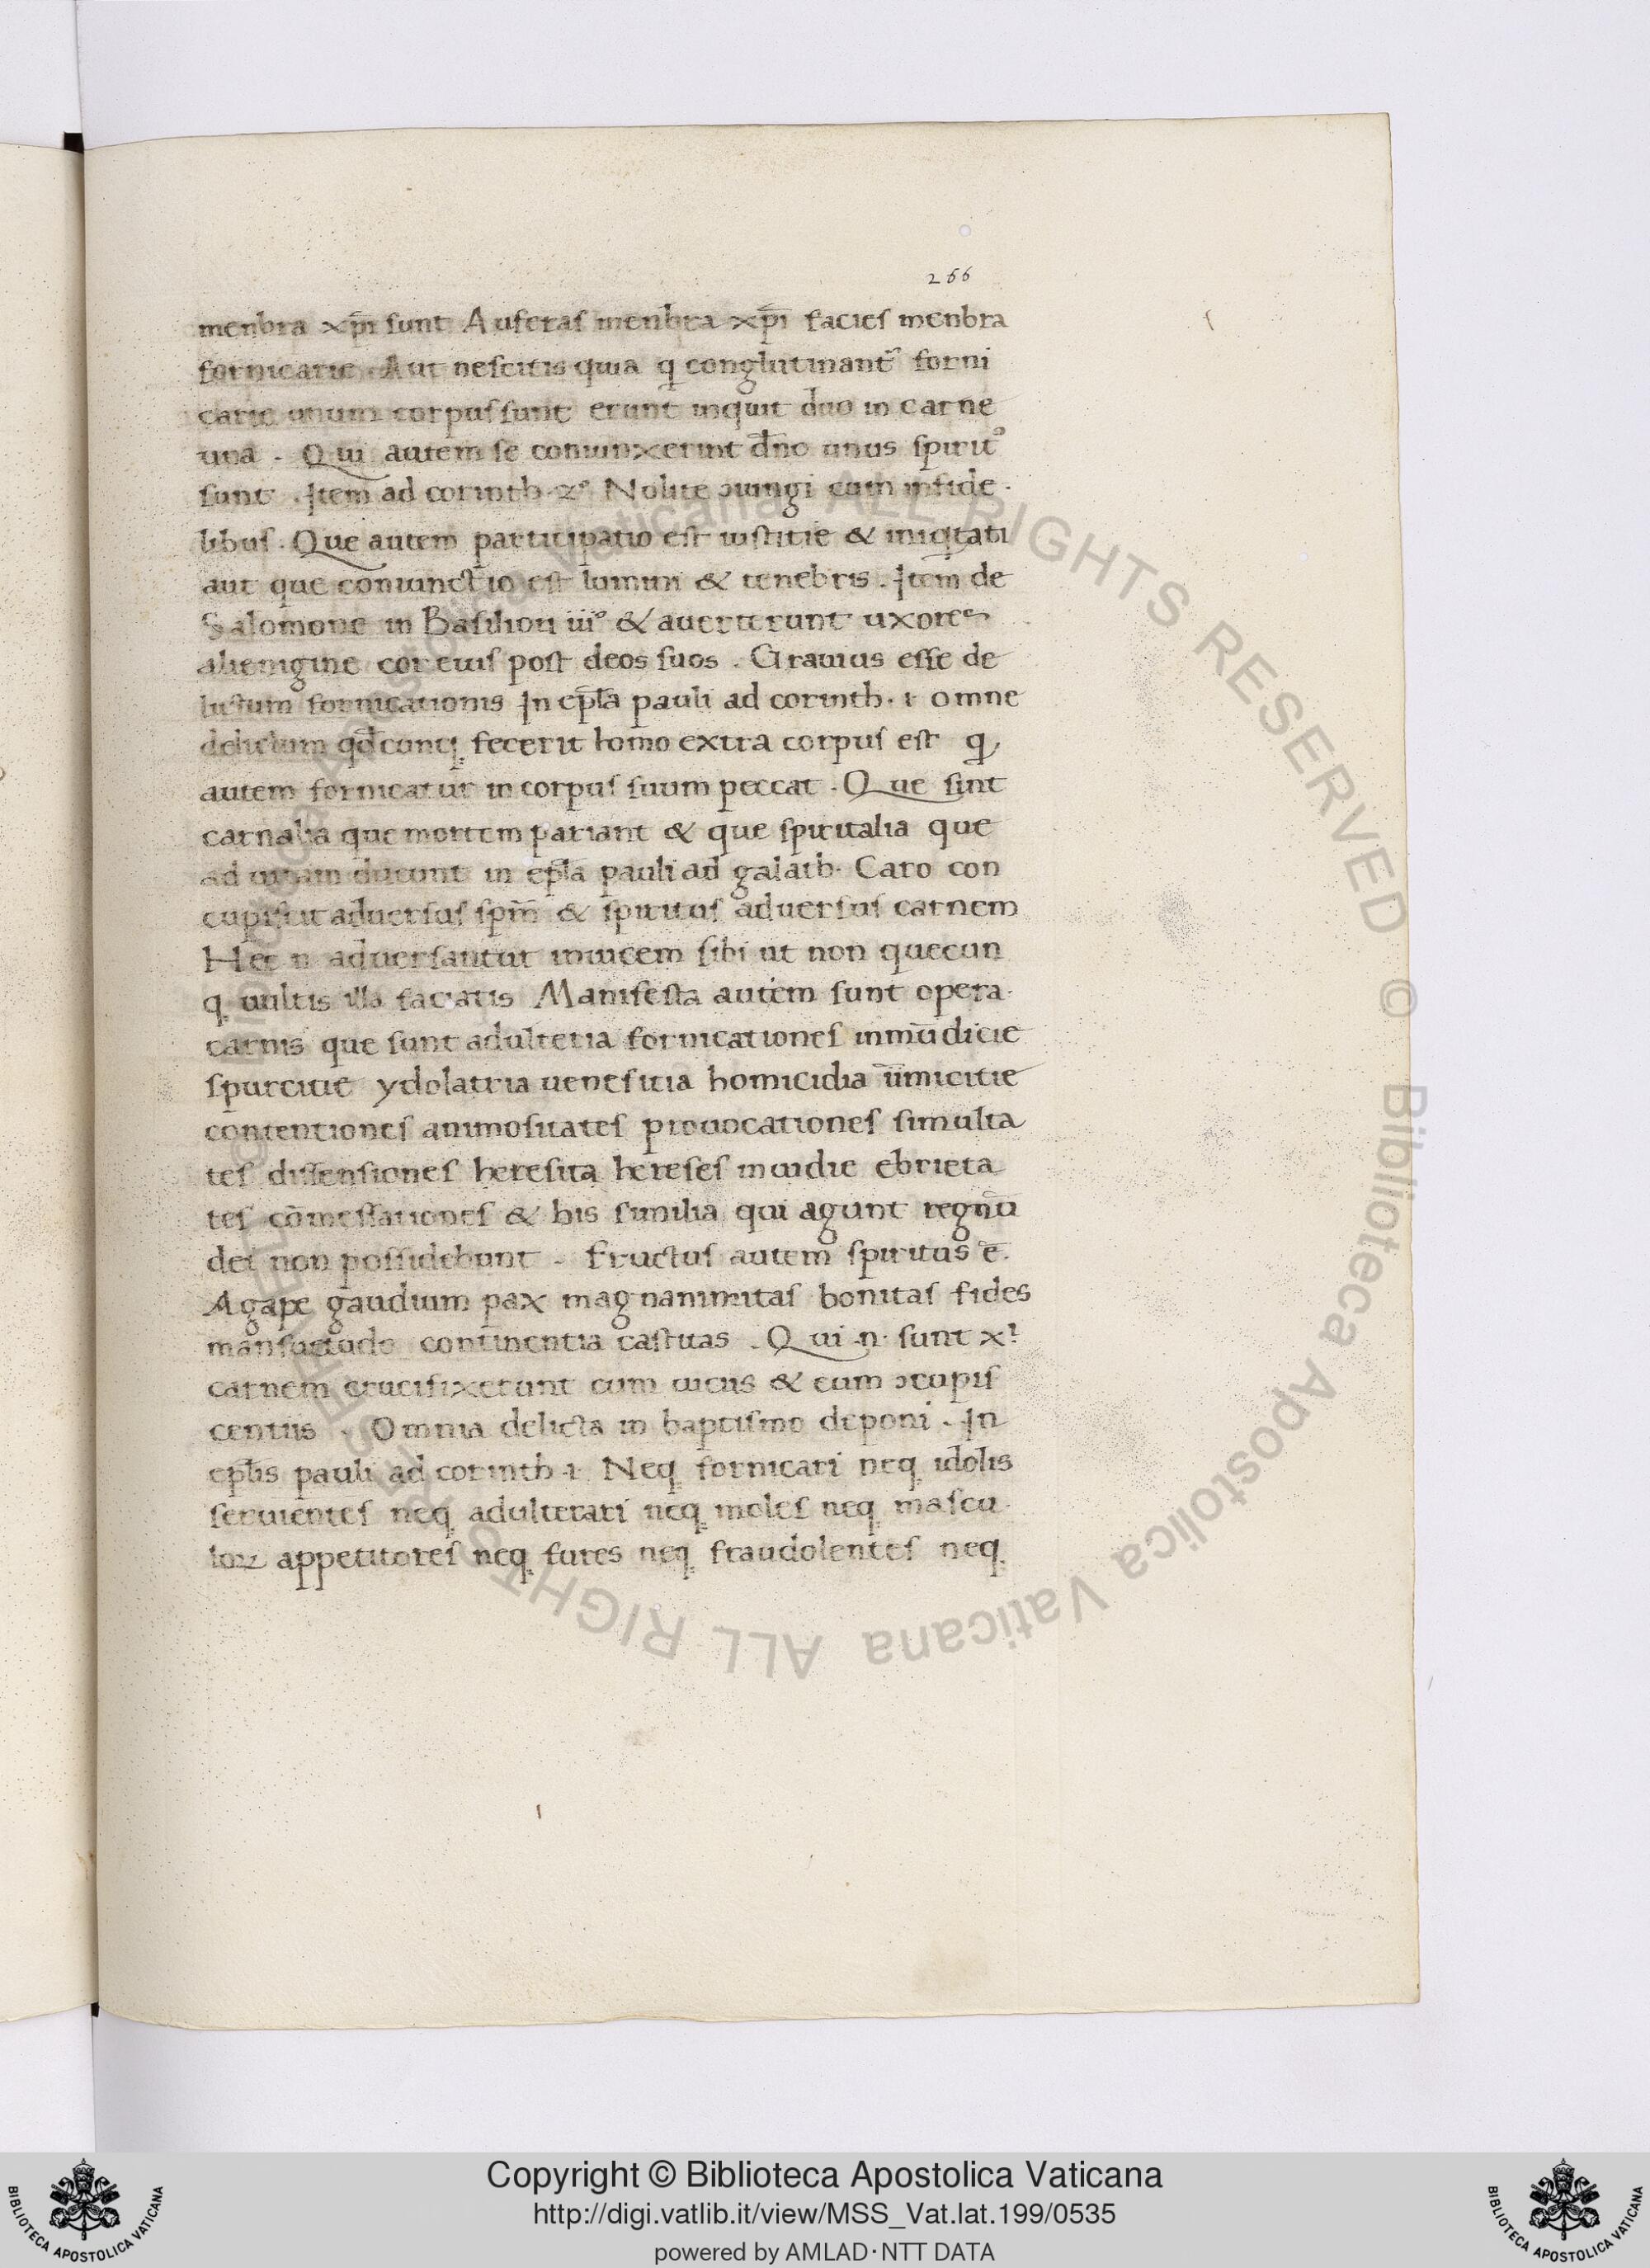 266
menbra xp̄i sunt Auferas menbra xp̄i facies menbra
fornicarie Aut nescitis quia q conglutinant᷑ forni
carie unum corpus sunt erunt inquit duo in carne
una. Qui autem se coniunxerint dn̄o unus spirit᾿
sunt. Item ad corinth. 2° Nolite ɔiungi cum infide.
libus. Que autem participatio est iustitie & iniqtati
aut que coniunctio est lumini & tenebris. Item de
Salomone in Basilion iii° & auerterunt uxores
alienigine cor eius post deos suos. Grauius esse de
lictum fornicationis In epl̄a pauli ad corinth. 1 omne
delictum qd̄cunq; fecerit homo extra corpus est q
autem fornicatur in corpus suum peccat. Que sint
carnalia que mortem pariant & que spiritalia que
ad uitam ducunt in epl̄a pauli ad galath. Caro con
cupiscit aduersus sp̄m & spiritus aduersus carnem
Hec n aduersantur inuicem sibi ut non quecun
q; uultis illa faciatis Manifesta autem sunt opera.
carnis que sunt adulteria fornicationes inmūdicie
spurcitie ydolatria uenefitia homicidia inimicitie
contentiones animositates prouocationes simulta
tes dissensiones heresita hereses inuidie ebrieta
tes cōmessationes & his similia qui agunt regnū
dei non possidebunt. Fructus autem spiritus ē.
Agape gaudium pax magnanimitas bonitas fides
mansuetudo continentia castitas. Qui .n. sunt xi
carnem crucifixerunt cum uiciis & cum ɔcupis
centiis. Omnia delicta in baptismo deponi. In
epl̄is pauli ad corinth .1. Neq; fornicari neq; idolis
seruientes neq; adulterari neq; moles neq; mascu.
loꝝ appetitores neq; fures neq; fraudolentes neq;
© Biblioteca Apostolica Vaticana ALL RIGHTS RESERVED © Biblioteca Apostolica Vaticana ALL RIGHTS RESERVED
Copyright © Biblioteca Apostolica Vaticana
http://digi.vatlib.it/view/MSS_Vat.lat.199/0535
powered by AMLAD·NTT DATA
BIBLIOTECA APOSTOLICA VATICANA
BIBLIOTECA APOSTOLICA VATICANA